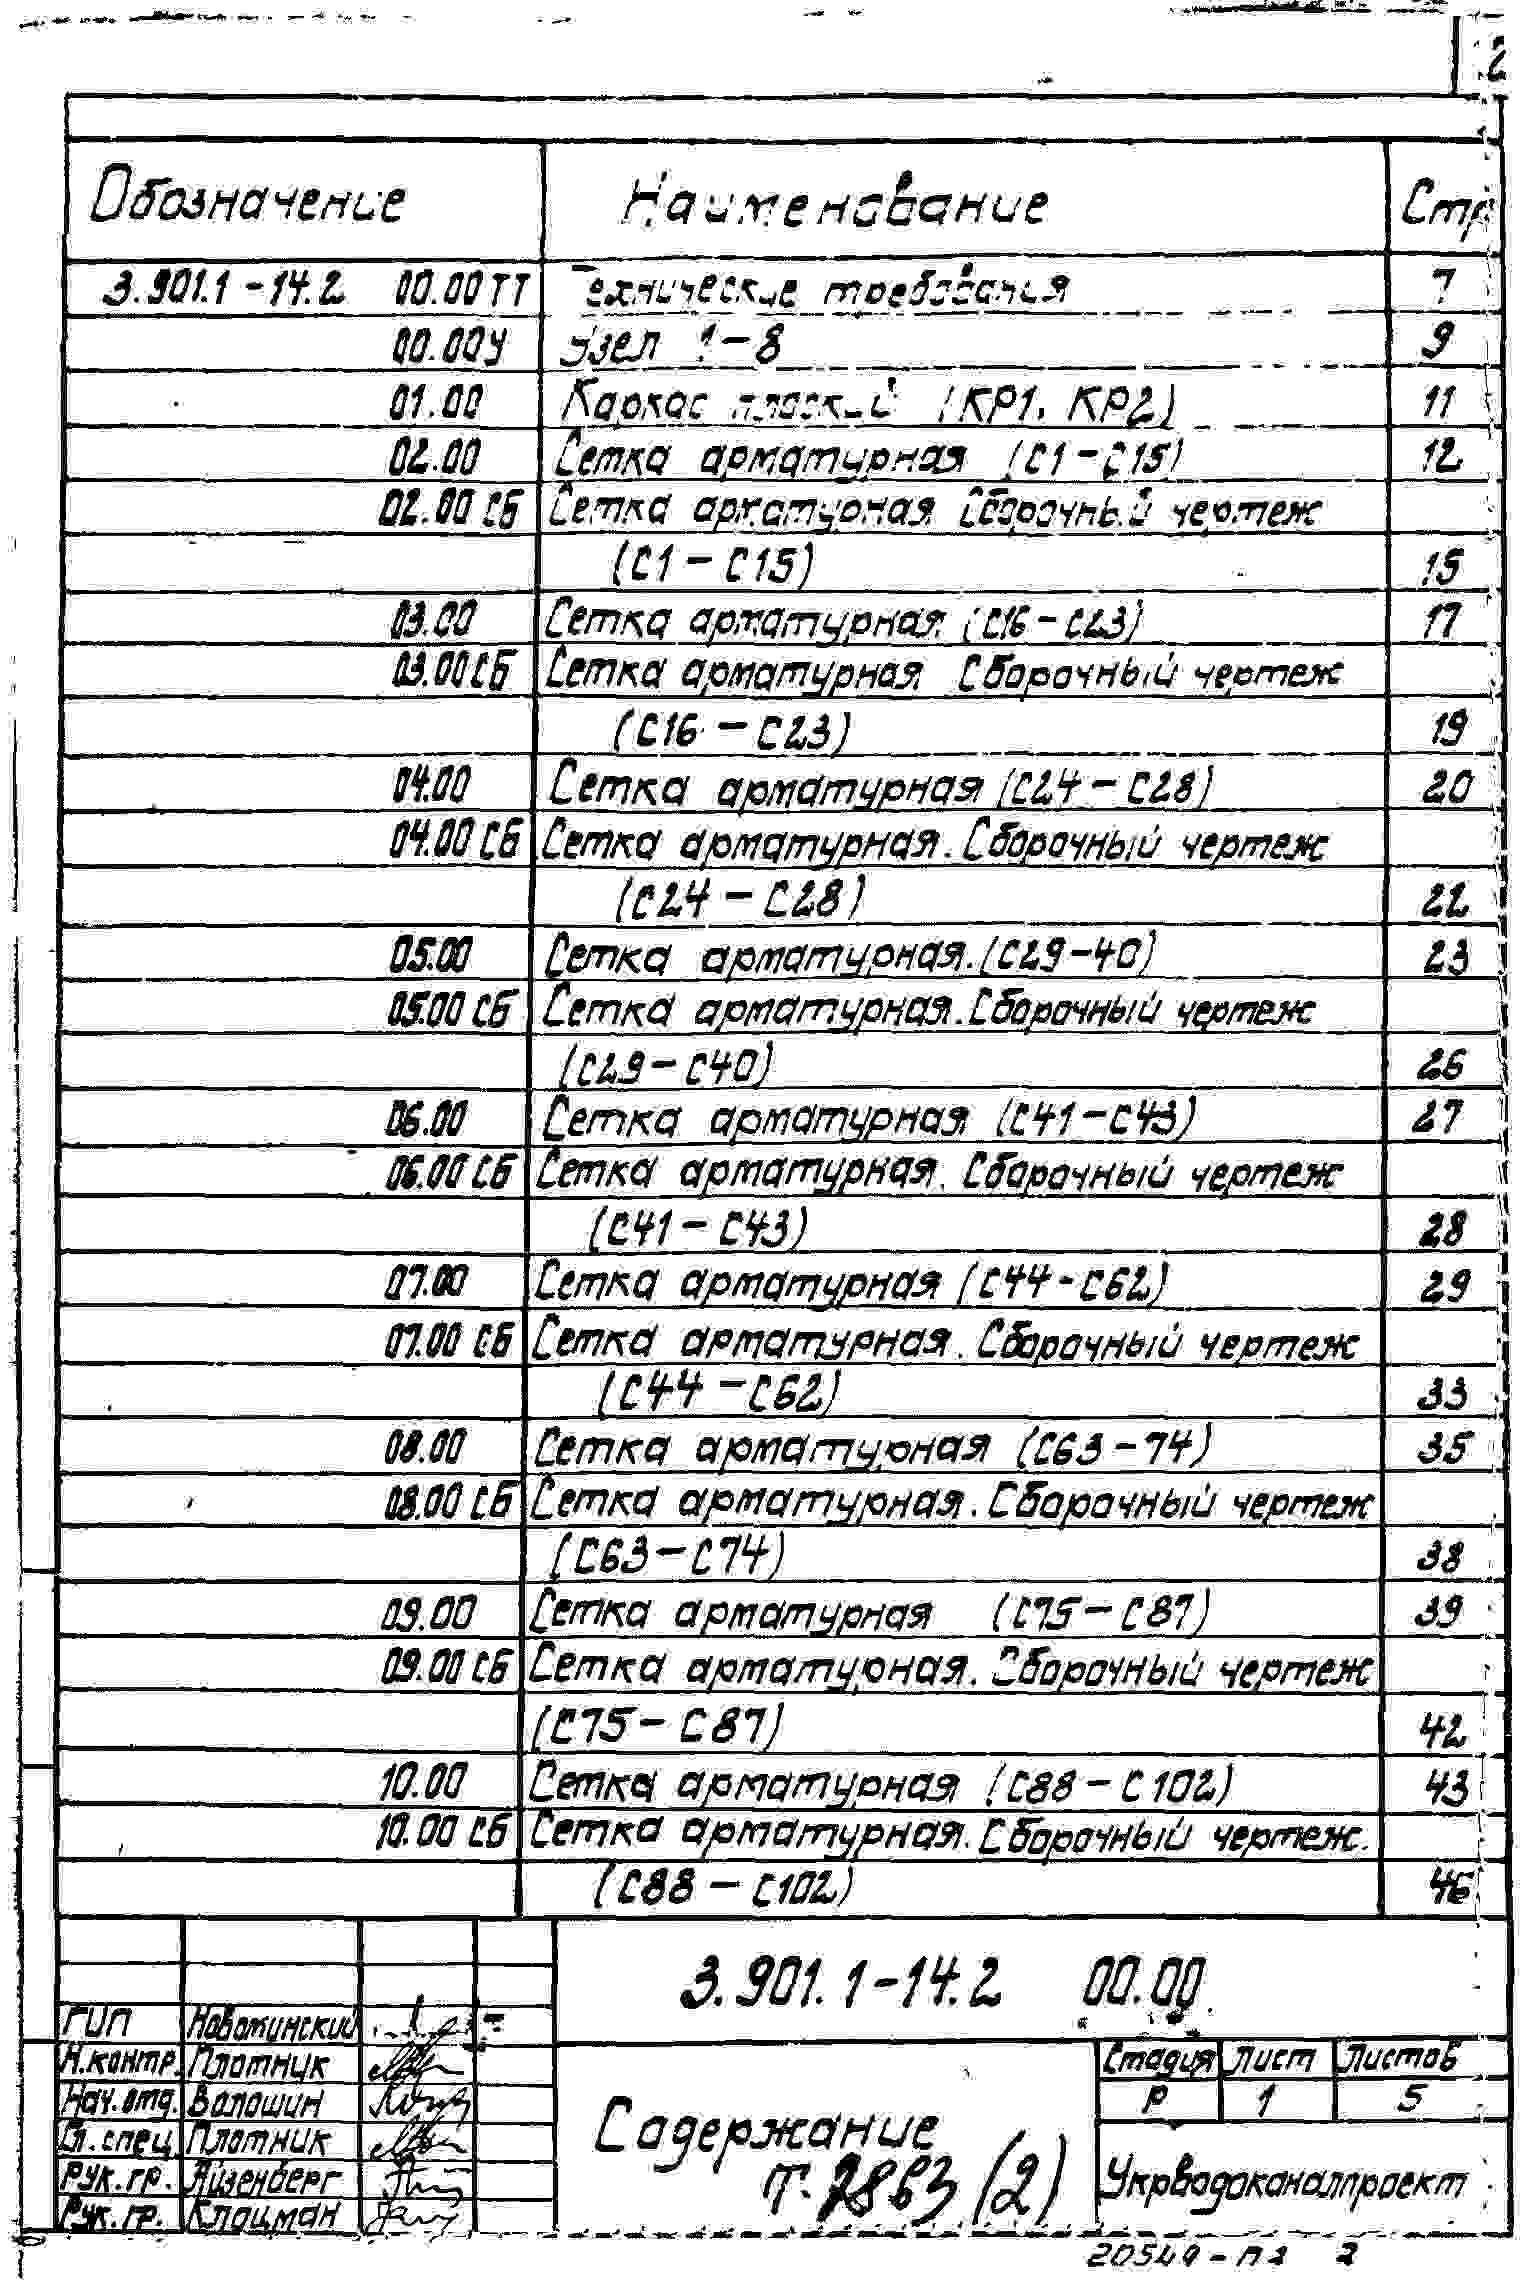 2
Обозначение Наименование Стр
3.901.1-14.2 00.00ТТ Технические требования 7
00.00У Узел 1-8 9
01.00 Каркас плоский (КР1, КР2) 11
02.00 Сетка арматурная (С1-С15) 12
02.00 СБ Сетка арматурная Сборочный чертеж
(С1-С15) 15
03.00 Сетка арматурная (С16-С23) 17
03.00 СБ Сетка арматурная Сборочный чертеж
(С16-С23) 19
04.00 Сетка арматурная (С24-С28) 20
04.00 СБ Сетка арматурная. Сборочный чертеж
(С24-С28) 22
05.00 Сетка арматурная. (С29-40) 23
05.00 СБ Сетка арматурная. Сборочный чертеж
(С29-С40) 26
06.00 Сетка арматурная (С41-С43) 27
06.00 СБ Сетка арматурная. Сборочный чертеж
(С41-С43) 28
07.00 Сетка арматурная (С44-С62) 29
07.00 СБ Сетка арматурная. Сборочный чертеж
(С44-С62) 33
08.00 Сетка арматурная (С63-74) 35
08.00 СБ Сетка арматурная. Сборочный чертеж
(С63-С74) 38
09.00 Сетка арматурная (С75-С87) 39
09.00 СБ Сетка арматурная. Сборочный чертеж
(С75-С87) 42
10.00 Сетка арматурная (С88-С102) 43
10.00 СБ Сетка арматурная. Сборочный чертеж.
(С88-С102) 46
3.901.1-14.2 00.00
ГИП Новоминский
Н.контр. Плотник
Нач.отд. Волошин
Гл.спец. Плотник
Рук.гр. Айзенберг
Рук.гр. Клоцман
Содержание
т. 2863 (2)
Стадия Лист Листов
Р 1 5
Укрводоканалпроект